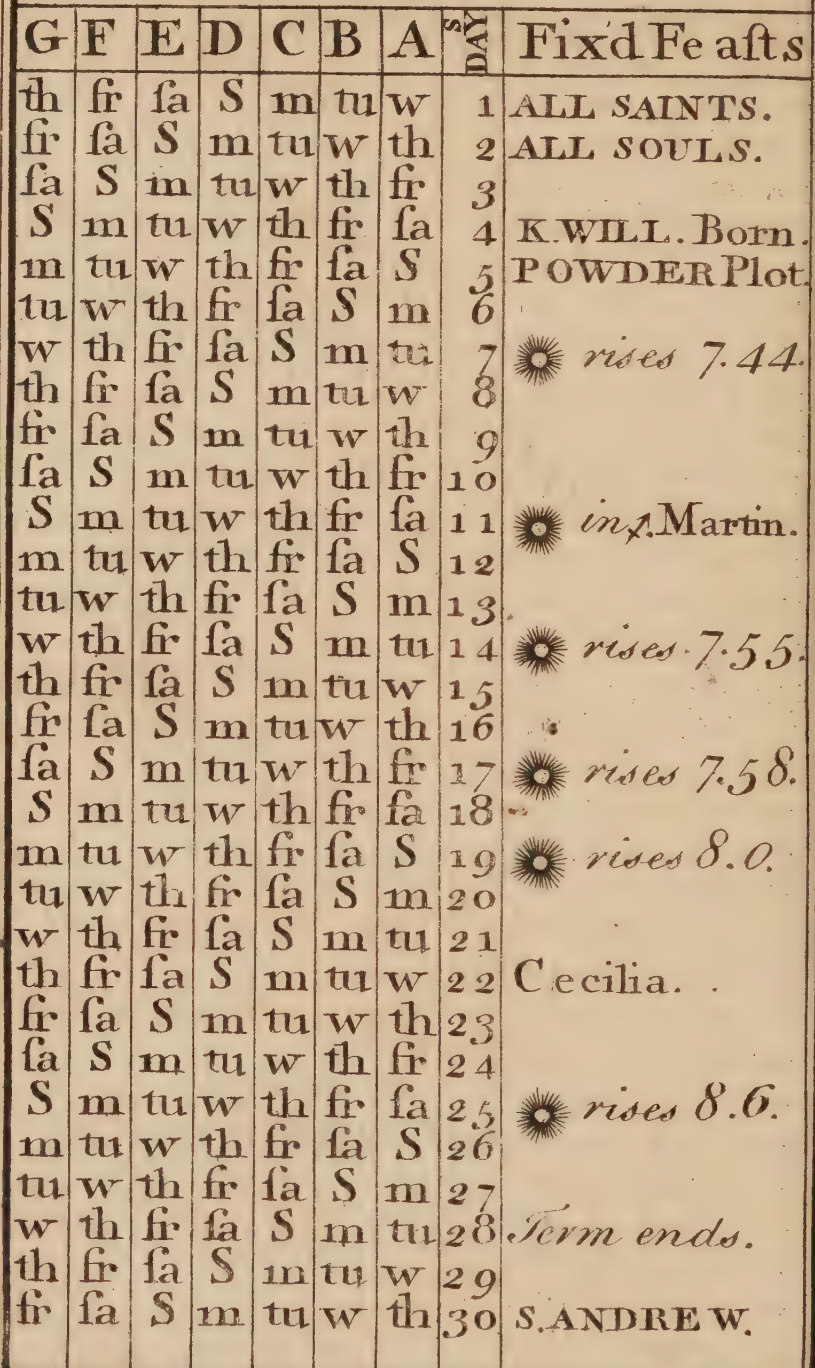 G F E D C B A DAYS Fix'd Feaſts
th fr ſa S m tu w 1 ALL SAINTS.
fr ſa S m tu w th 2 ALL SOULS.
ſa S m tu w th fr 3
S m tu w th fr ſa 4 K.WILL. Born.
m tu w th fr ſa S 5 POWDER Plot.
tu w th fr ſa S m 6
w th fr ſa S m tu 7 rises 7.44.
th fr ſa S m tu w 8
fr ſa S m tu w th 9
ſa S m tu w th fr 10
S m tu w th fr ſa 11 in ♐. Martin.
m tu w th fr ſa S 12
tu w th fr ſa S m 13
w th fr ſa S m tu 14 rises 7.55.
th fr ſa S m tu w 15
fr ſa S m tu w th 16
ſa S m tu w th fr 17 rises 7.58.
S m tu w th fr ſa 18
m tu w th fr ſa S 19 rises 8.0.
tu w th fr ſa S m 20
w th fr ſa S m tu 21
th fr ſa S m tu w 22 Cecilia.
fr ſa S m tu w th 23
ſa S m tu w th fr 24
S m tu w th fr ſa 25 rises 8.6.
m tu w th fr ſa S 26
tu w th fr ſa S m 27
w th fr ſa S m tu 28 Term ends.
th fr ſa S m tu w 29
fr ſa S m tu w th 30 S. ANDREW.